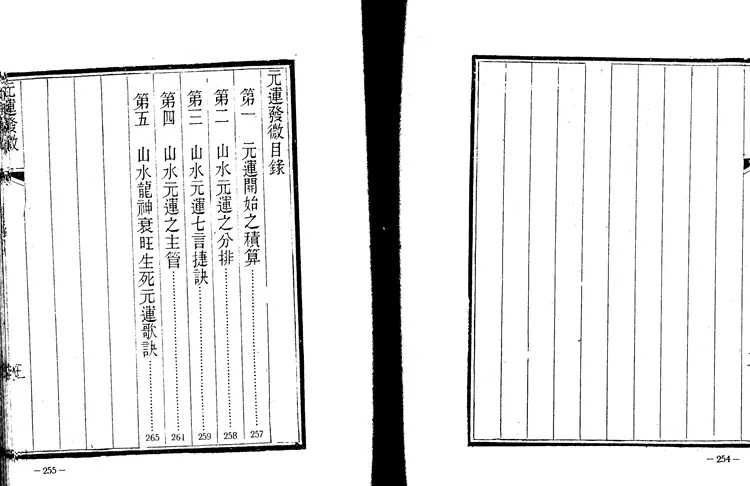 元運發微目錄
第一 元運開始之積算……………257
第二 山水元運之分排……………258
第三 山水元運七言捷訣……………259
第四 山水元運之主管……………261
第五 山水龍神衰旺生死元運歌訣……………265
元運發微
－255－
－254－